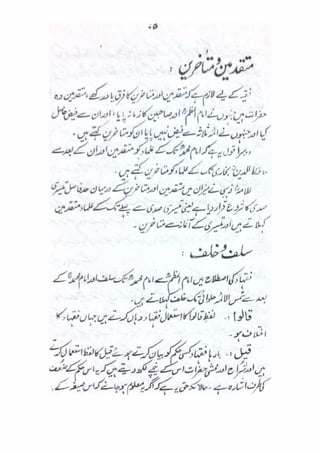 ۷۵
متقدمین و متأخرین :
فتویٰ کے لیے لازم ہے کہ متقدمین اور متأخرین کا فرق یاد رکھے، متقدمین وہ
حضرات ہیں جنہوں نے امام اعظمؒ اور صاحبین کا زمانہ پایا، اور ان سے فیض حاصل
کیا اور جنہوں نے ائمہ ثلاثہ سے فیض نہیں پایا ان کو متأخرین کہتے ہیں۔
دوسرا قول یہ ہے کہ امام محمدؒ تک کے علماء کو متقدمین اور ان کے بعد سے
حافظ الدین بخاری تک کے علماء کو متأخرین کہتے ہیں۔
علامہ ذہبی نے میزان میں متقدمین اور متأخرین کے درمیان حد فاصل تیسری
صدی کا شروع قرار دیا ہے یعنی تیسری صدی سے پہلے تک کے علماء متقدمین
کہلاتے ہیں اور تیسری کے آغاز سے متأخرین۔
سلف و خلف :
فقہاء کی اصطلاح میں امام اعظمؒ سے امام محمدؒ تک سلف اور امام محمدؒ کے
بعد سے شمس الائمہ حلوانی تک خلف کہلاتے ہیں۔
قالوا : لفظ قالوا کا استعمال فقہاء وہاں کرتے ہیں جہاں فقہاء کا
اختلاف ہو۔
قیل : بارہا فقہاء کسی حکم کو بیان کرتے ہوئے قیل کا لفظ استعمال کرتے
ہیں اور شراح اور محشی حضرات اس کے نیچے لکھ دیتے ہیں کہ یہ اس حکم کے ضعف
کی طرف اشارہ ہے، حالانکہ حق یہ ہے کہ اگر یہ معلوم ہو جائے کہ اس صیغہ کے